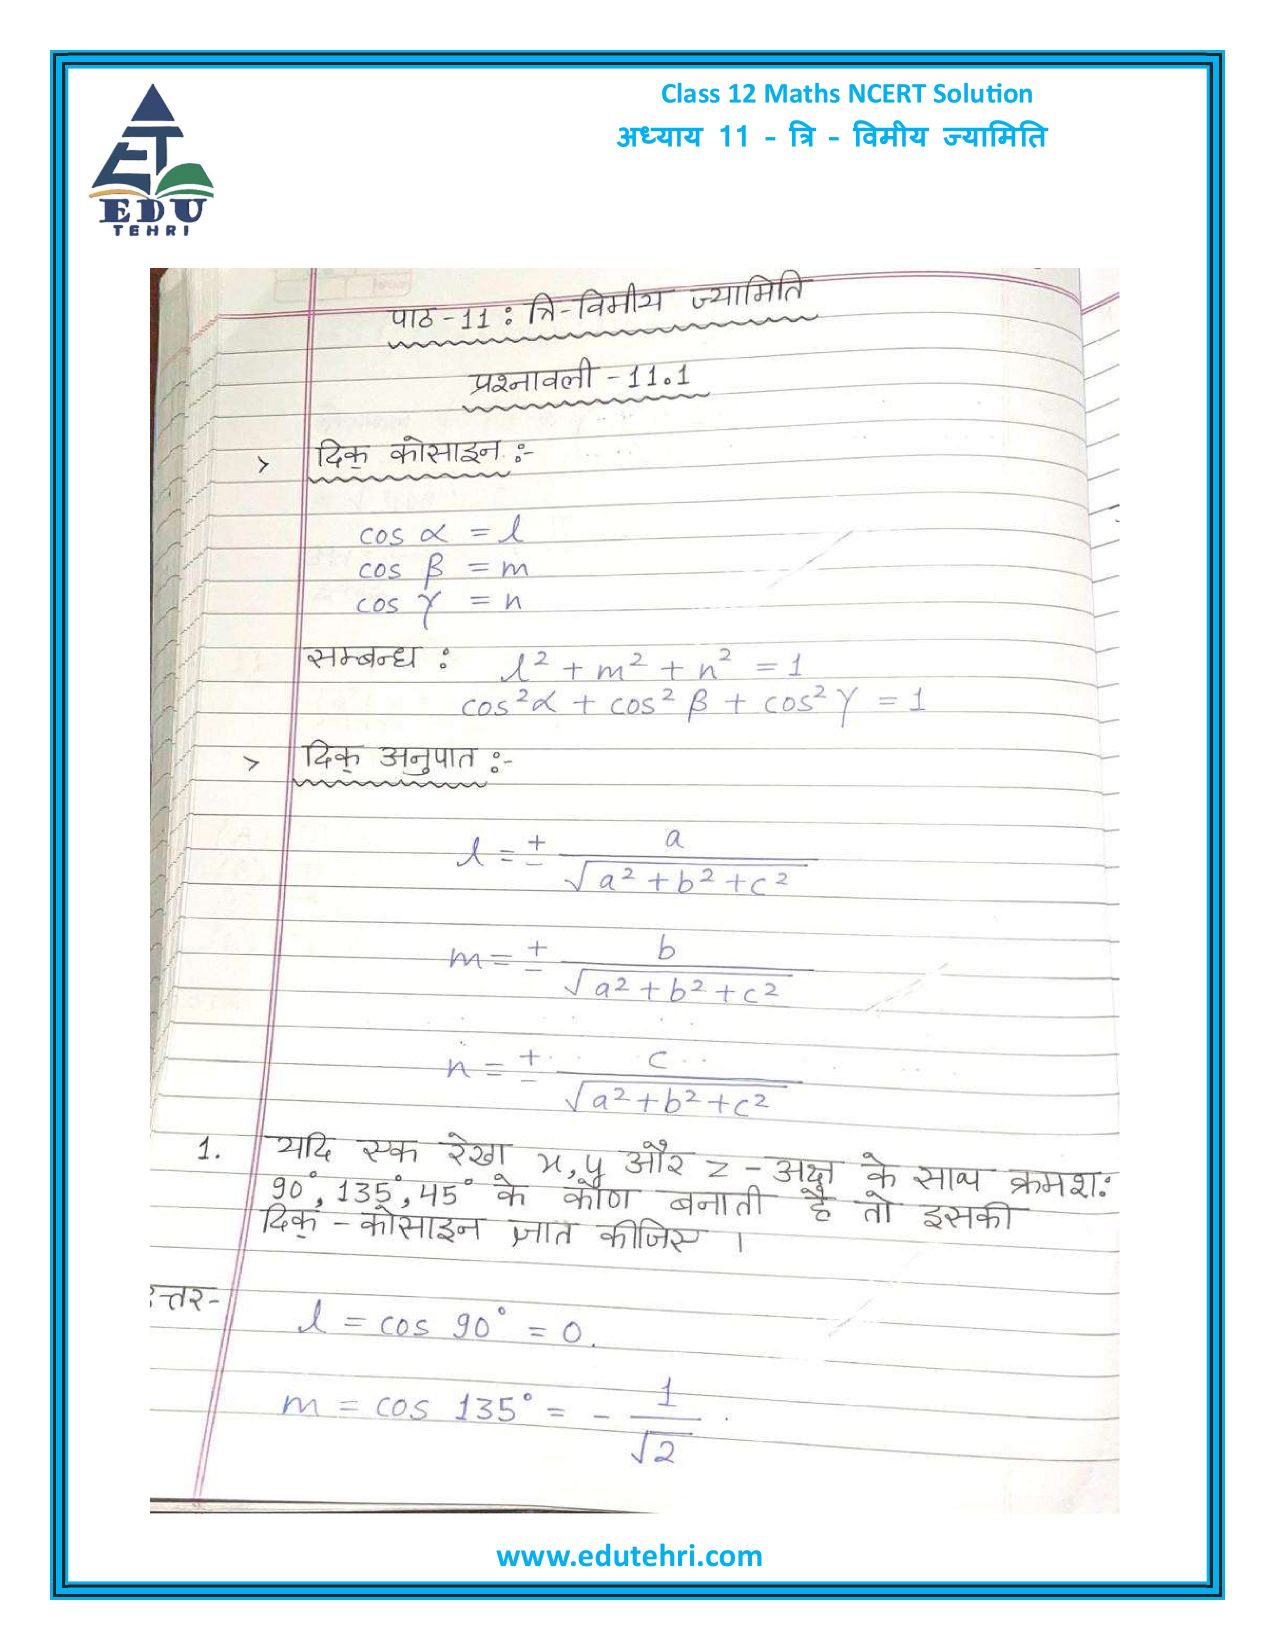 Class 12 Maths NCERT Solution
अध्याय 11 - त्रि - विमीय ज्यामिति
EDU
TEHRI
पाठ - 11 : त्रि-विमीय ज्यामिति
प्रश्नावली - 11.1
> दिक् कोसाइन :-
cos α = l
cos β = m
cos γ = n
सम्बन्ध : l² + m² + n² = 1
cos²α + cos²β + cos²γ = 1
> दिक् अनुपात :-
l = ± a / √(a² + b² + c²)
m = ± b / √(a² + b² + c²)
n = ± c / √(a² + b² + c²)
1. यदि एक रेखा x, y और z - अक्ष के साथ क्रमश:
90°, 135°, 45° के कोण बनाती है तो इसकी
दिक् - कोसाइन ज्ञात कीजिए ।
त्तर-
l = cos 90° = 0.
m = cos 135° = - 1/√2 .
www.edutehri.com